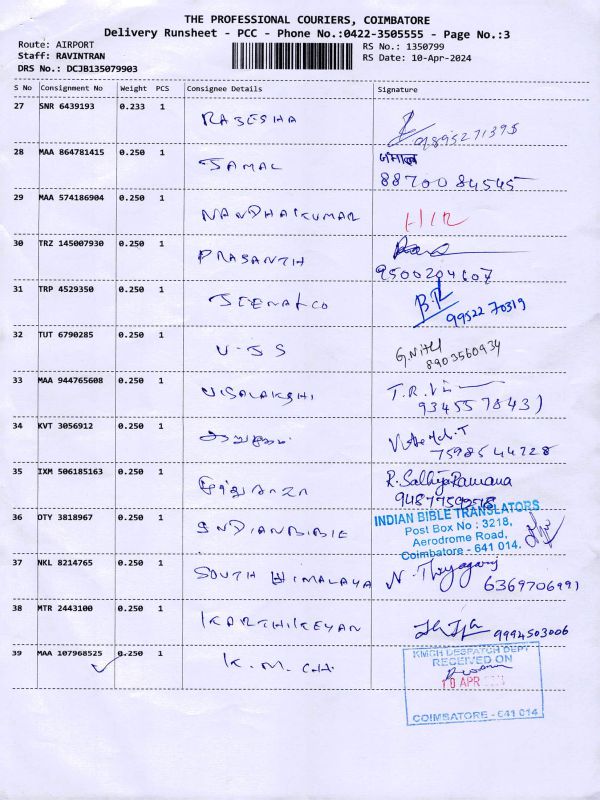 THE PROFESSIONAL COURIERS, COIMBATORE
Delivery Runsheet - PCC - Phone No.:0422-3505555 - Page No.:3
Route: AIRPORT
Staff: RAVINTRAN
DRS No.: DCJB135079903
RS No.: 1350799
RS Date: 10-Apr-2024
S No Consignment No Weight PCS Consignee Details Signature
27 SNR 6439193 0.233 1 RAJESHA 9895271395
28 MAA 864781415 0.250 1 JAMAL ஜமால்
8870084545
29 MAA 574186904 0.250 1 NANDHAKUMAR
30 TRZ 145007930 0.250 1 PRASANTH
9500204607
31 TRP 4529350 0.250 1 JEENA & CO
9952270319
32 TUT 6790285 0.250 1 U-JS G.Nithi
8903560934
33 MAA 944765608 0.250 1 VISALAKSHI T.R.
9345578431
34 KVT 3056912 0.250 1
7598544728
35 IXM 506185163 0.250 1 R. Sathya Ramana
36 OTY 3818967 0.250 1 INDIAN BIBLE INDIAN BIBLE TRANSLATORS
Post Box No : 3218,
Aerodrome Road,
Coimbatore - 641 014.
37 NKL 8214765 0.250 1 SOUTH HIMALAYA N. Thyagaraj
6369706991
38 MTR 2443100 0.250 1 KARTHIKEYAN 9994503006
39 MAA 107968525 0.250 1 K.M.CH.
KMCH DESPATCH DEPT
RECEIVED ON
10 APR
COIMBATORE - 641 014